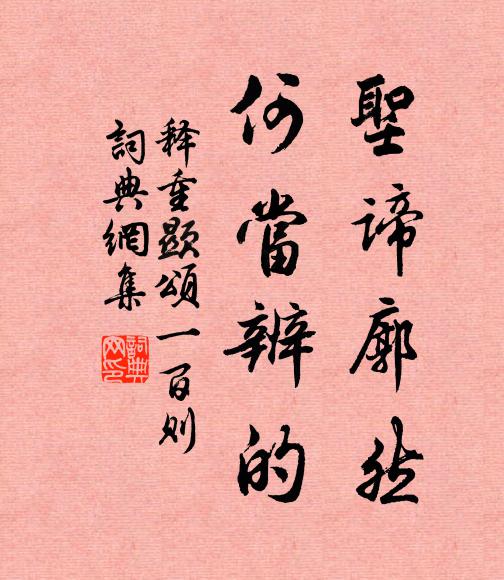 聖諦廓然
何當辨的
释重顯頌一百则
詞典網集
詞典
网印